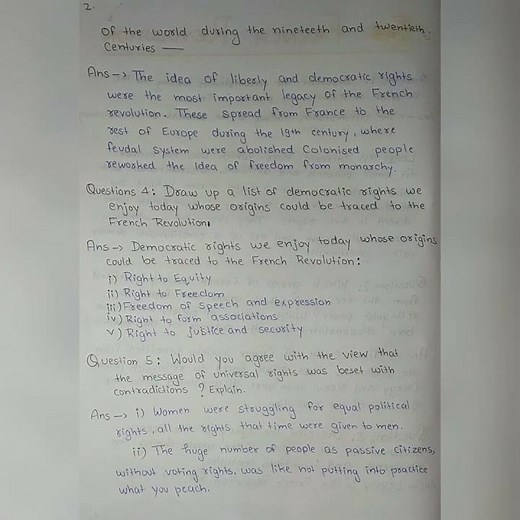 2.
of the world during the nineteeth and twentieth
centuries —
Ans → The idea of liberly and democratic rights
were the most important legacy of the French
revolution. These spread from France to the
rest of Europe during the 19th century, where
feudal system were abolished Colonised people
reworked the Idea of freedom from monarchy.
Questions 4: Draw up a list of democratic rights we
enjoy today whose origins could be traced to the
French Revolution
Ans → Democratic rights we enjoy today whose origins
could be traced to the French Revolution:
i) Right to Equity
ii) Right to Freedom
iii) Freedom of Speech and expression
iv) Right to form associations
v) Right to justice and security
Question 5: Would you agree with the view that
the message of universal rights was beset with
contradictions? Explain.
Ans → i) Women were struggling for equal political
rights, all the rights that time were given to men.
ii) The huge number of people as passive citizens,
without voting rights, was like not putting into practice
what you peach.